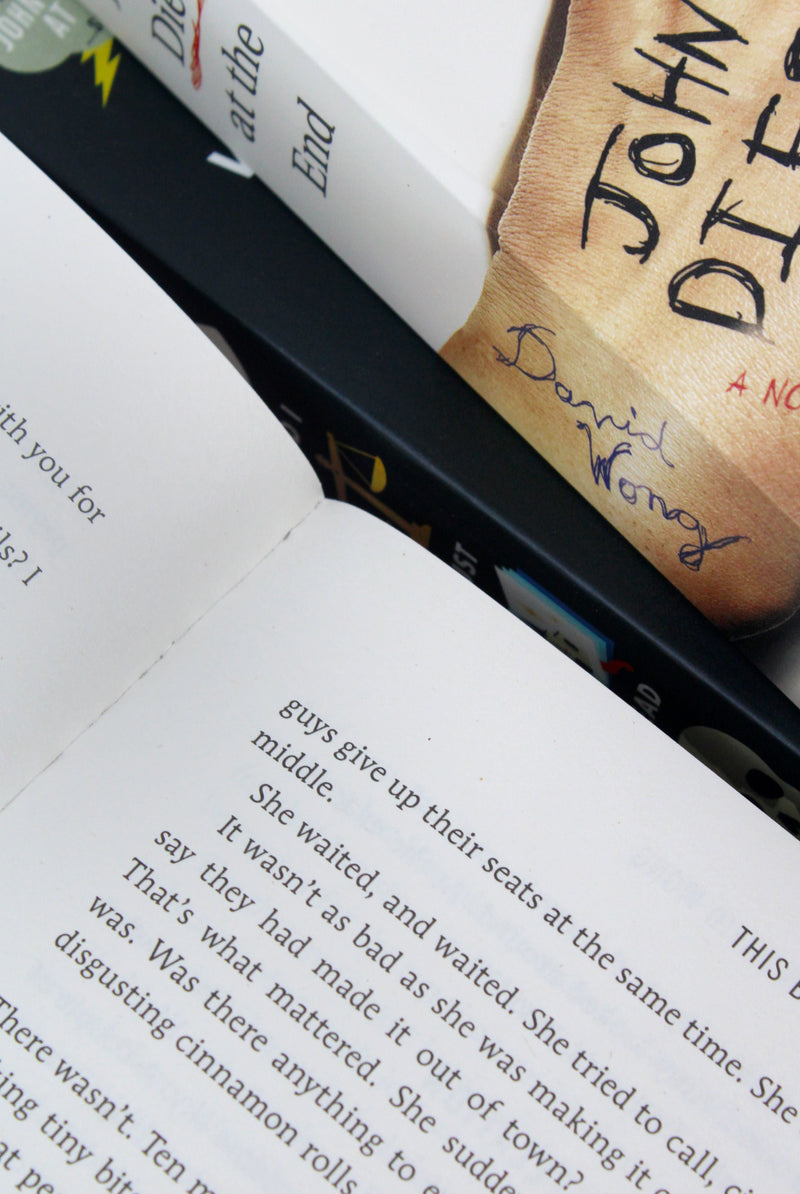 JOHN
AT
Die
at the
End
JOHN
DIE
David
Wong
A NO
ith you for
ls? I
IST
AD
THIS B
guys give up their seats at the same time. She
middle.
She waited, and waited. She tried to call,
It wasn't as bad as she was making it
say they had made it out of town?
That's what mattered. She sudde
was. Was there anything to e
disgusting cinnamon rolls
There wasn't. Ten m
ing tiny bit
at pe